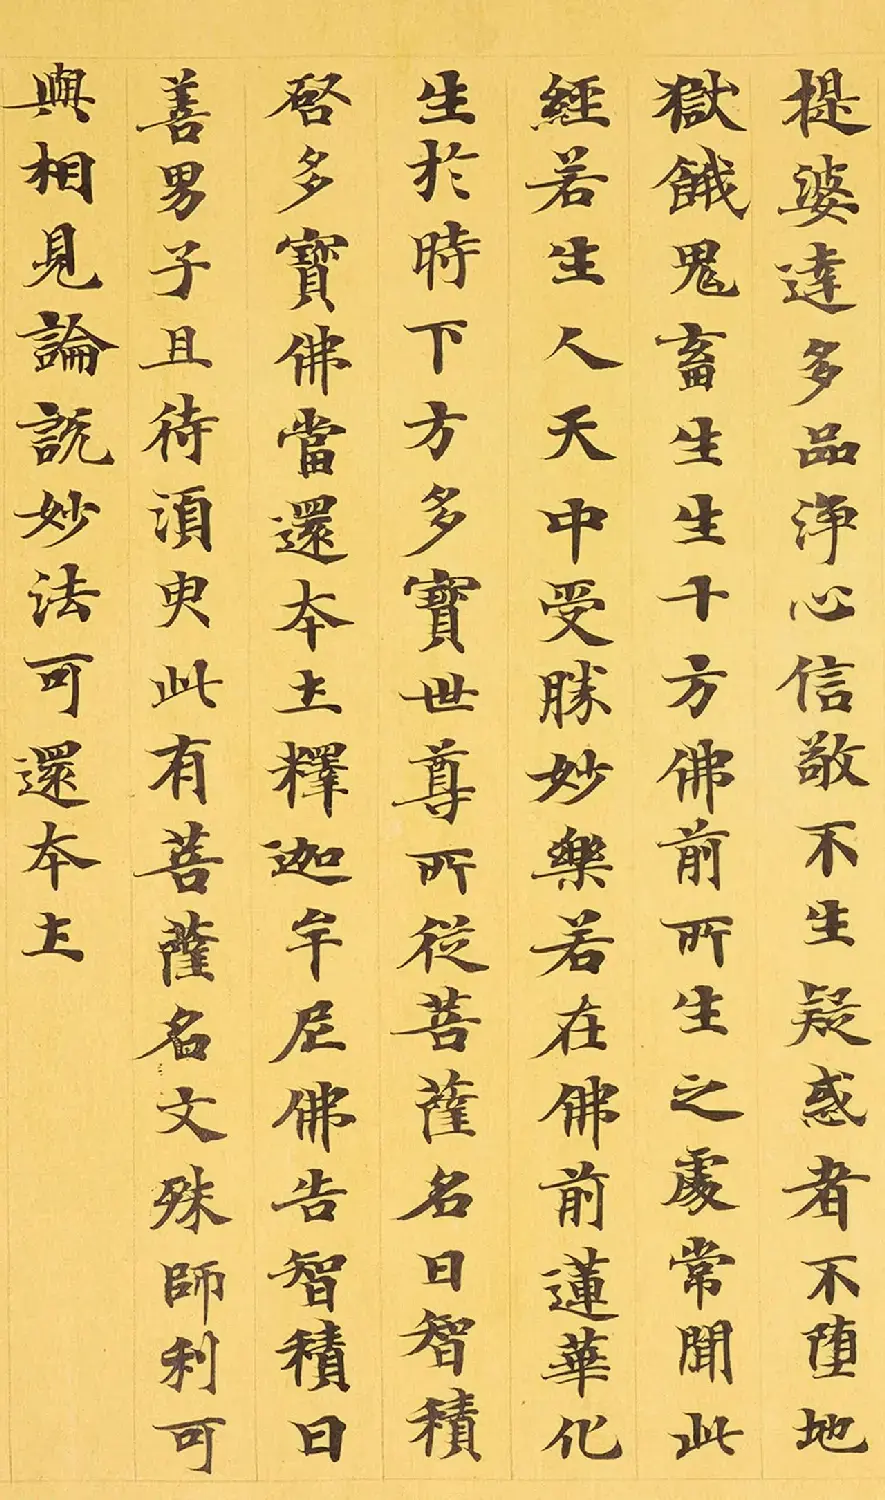 提婆達多品淨心信敬不生疑惑者不墮地
獄餓鬼畜生生十方佛前所生之處常聞此
經若生人天中受勝妙樂若在佛前蓮華化
生於時下方多寶世尊所從菩薩名曰智積
啓多寶佛當還本土釋迦牟尼佛告智積曰
善男子且待須臾此有菩薩名文殊師利可
與相見論說妙法可還本土